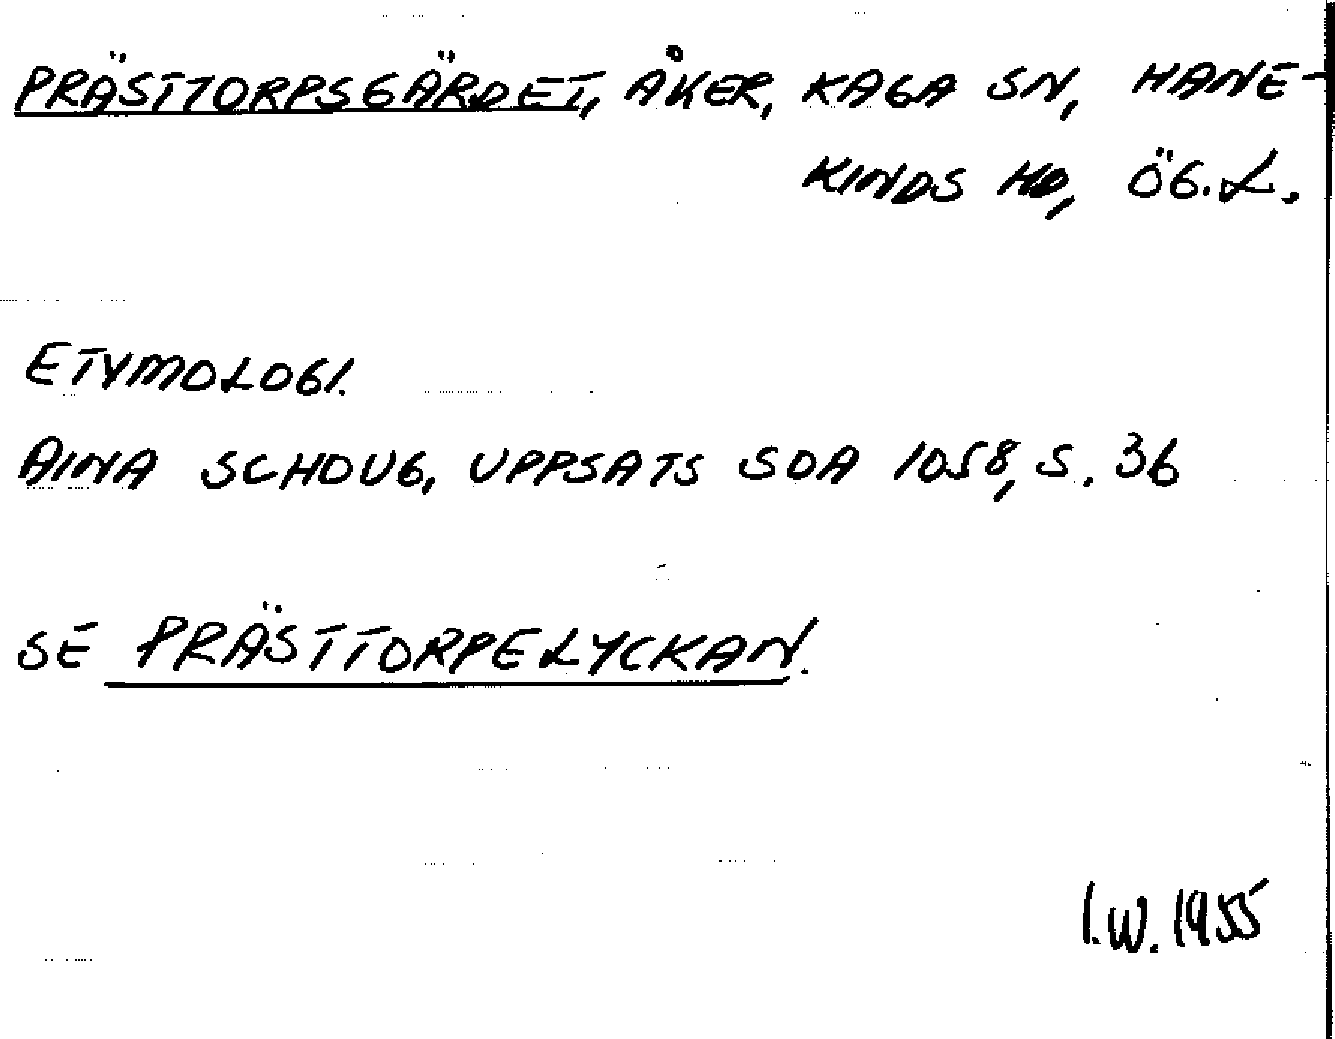 PRÄSTTORPSGÄRDET, ÅKER, KAGA SN, HANE-
KINDS HD, ÖG.L.
ETYMOLOGI.
AINA SCHOUG, UPPSATS SOA 1058, S. 36
SE PRÄSTTORPELYCKAN.
I.W. 1955